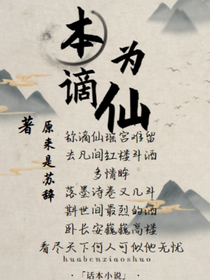 本为
谪仙
原来是苏辞 著
称谪仙瑶宫难留
去凡间红楼斗酒
多情眸
落墨诗卷又几斗
斟世间最烈的酒
卧长安巍巍高楼
看尽天下何人可似他无忧
huabenxiaoshuo
「话本小说」